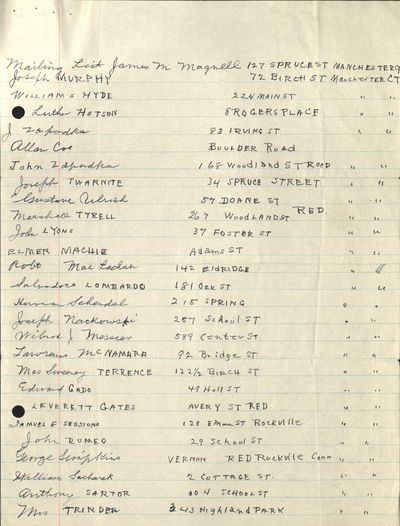 Mailing List James M Magnell 127 SPRUCE ST MANCHESTER
Joseph MURPHY 72 BIRCH ST Manchester CT
WILLIAM S HYDE 224 MAIN ST " "
Luther HUTSON 8 ROGERS PLACE " "
J Zapadka 83 IRVING ST " "
Allan Coe BOULDER Road
John Zapadka 168 Woodland ST ROAD " "
Joseph TWARNITE 34 SPRUCE STREET " "
Gustave Ulrich 57 DOANE ST " "
Marshall TYRELL 267 WOODLAND ST RED. " "
John LYONS 37 FOSTER ST " "
ELMER MACHIE Adams ST " "
Robt Mac Lachan 142 ELDRIDGE "
Salvadore LOMBARDO 181 Oak ST " "
Herman Schendel 215 SPRING " "
Joseph Nackowski 257 School ST " "
Wilrod J Messier 589 Center ST " "
Lawrence McNAMARA 92 Bridge ST " "
Mac Sweeney TERRENCE 122½ BIRCH ST " "
Edward GADO 49 Holl ST " "
LEVERETT GATES AVERY ST RED " "
SAMUEL E SESSIONS 128 E Main ST Rockville " "
John ROMEO 29 School ST " "
George VERNON RED Rockville Conn " "
William Sacharek 2 COTTAGE ST. " "
Anthony SARTOR 4 SCHOOL ST " "
Mrs TRINDER 243 Highland PARK " "